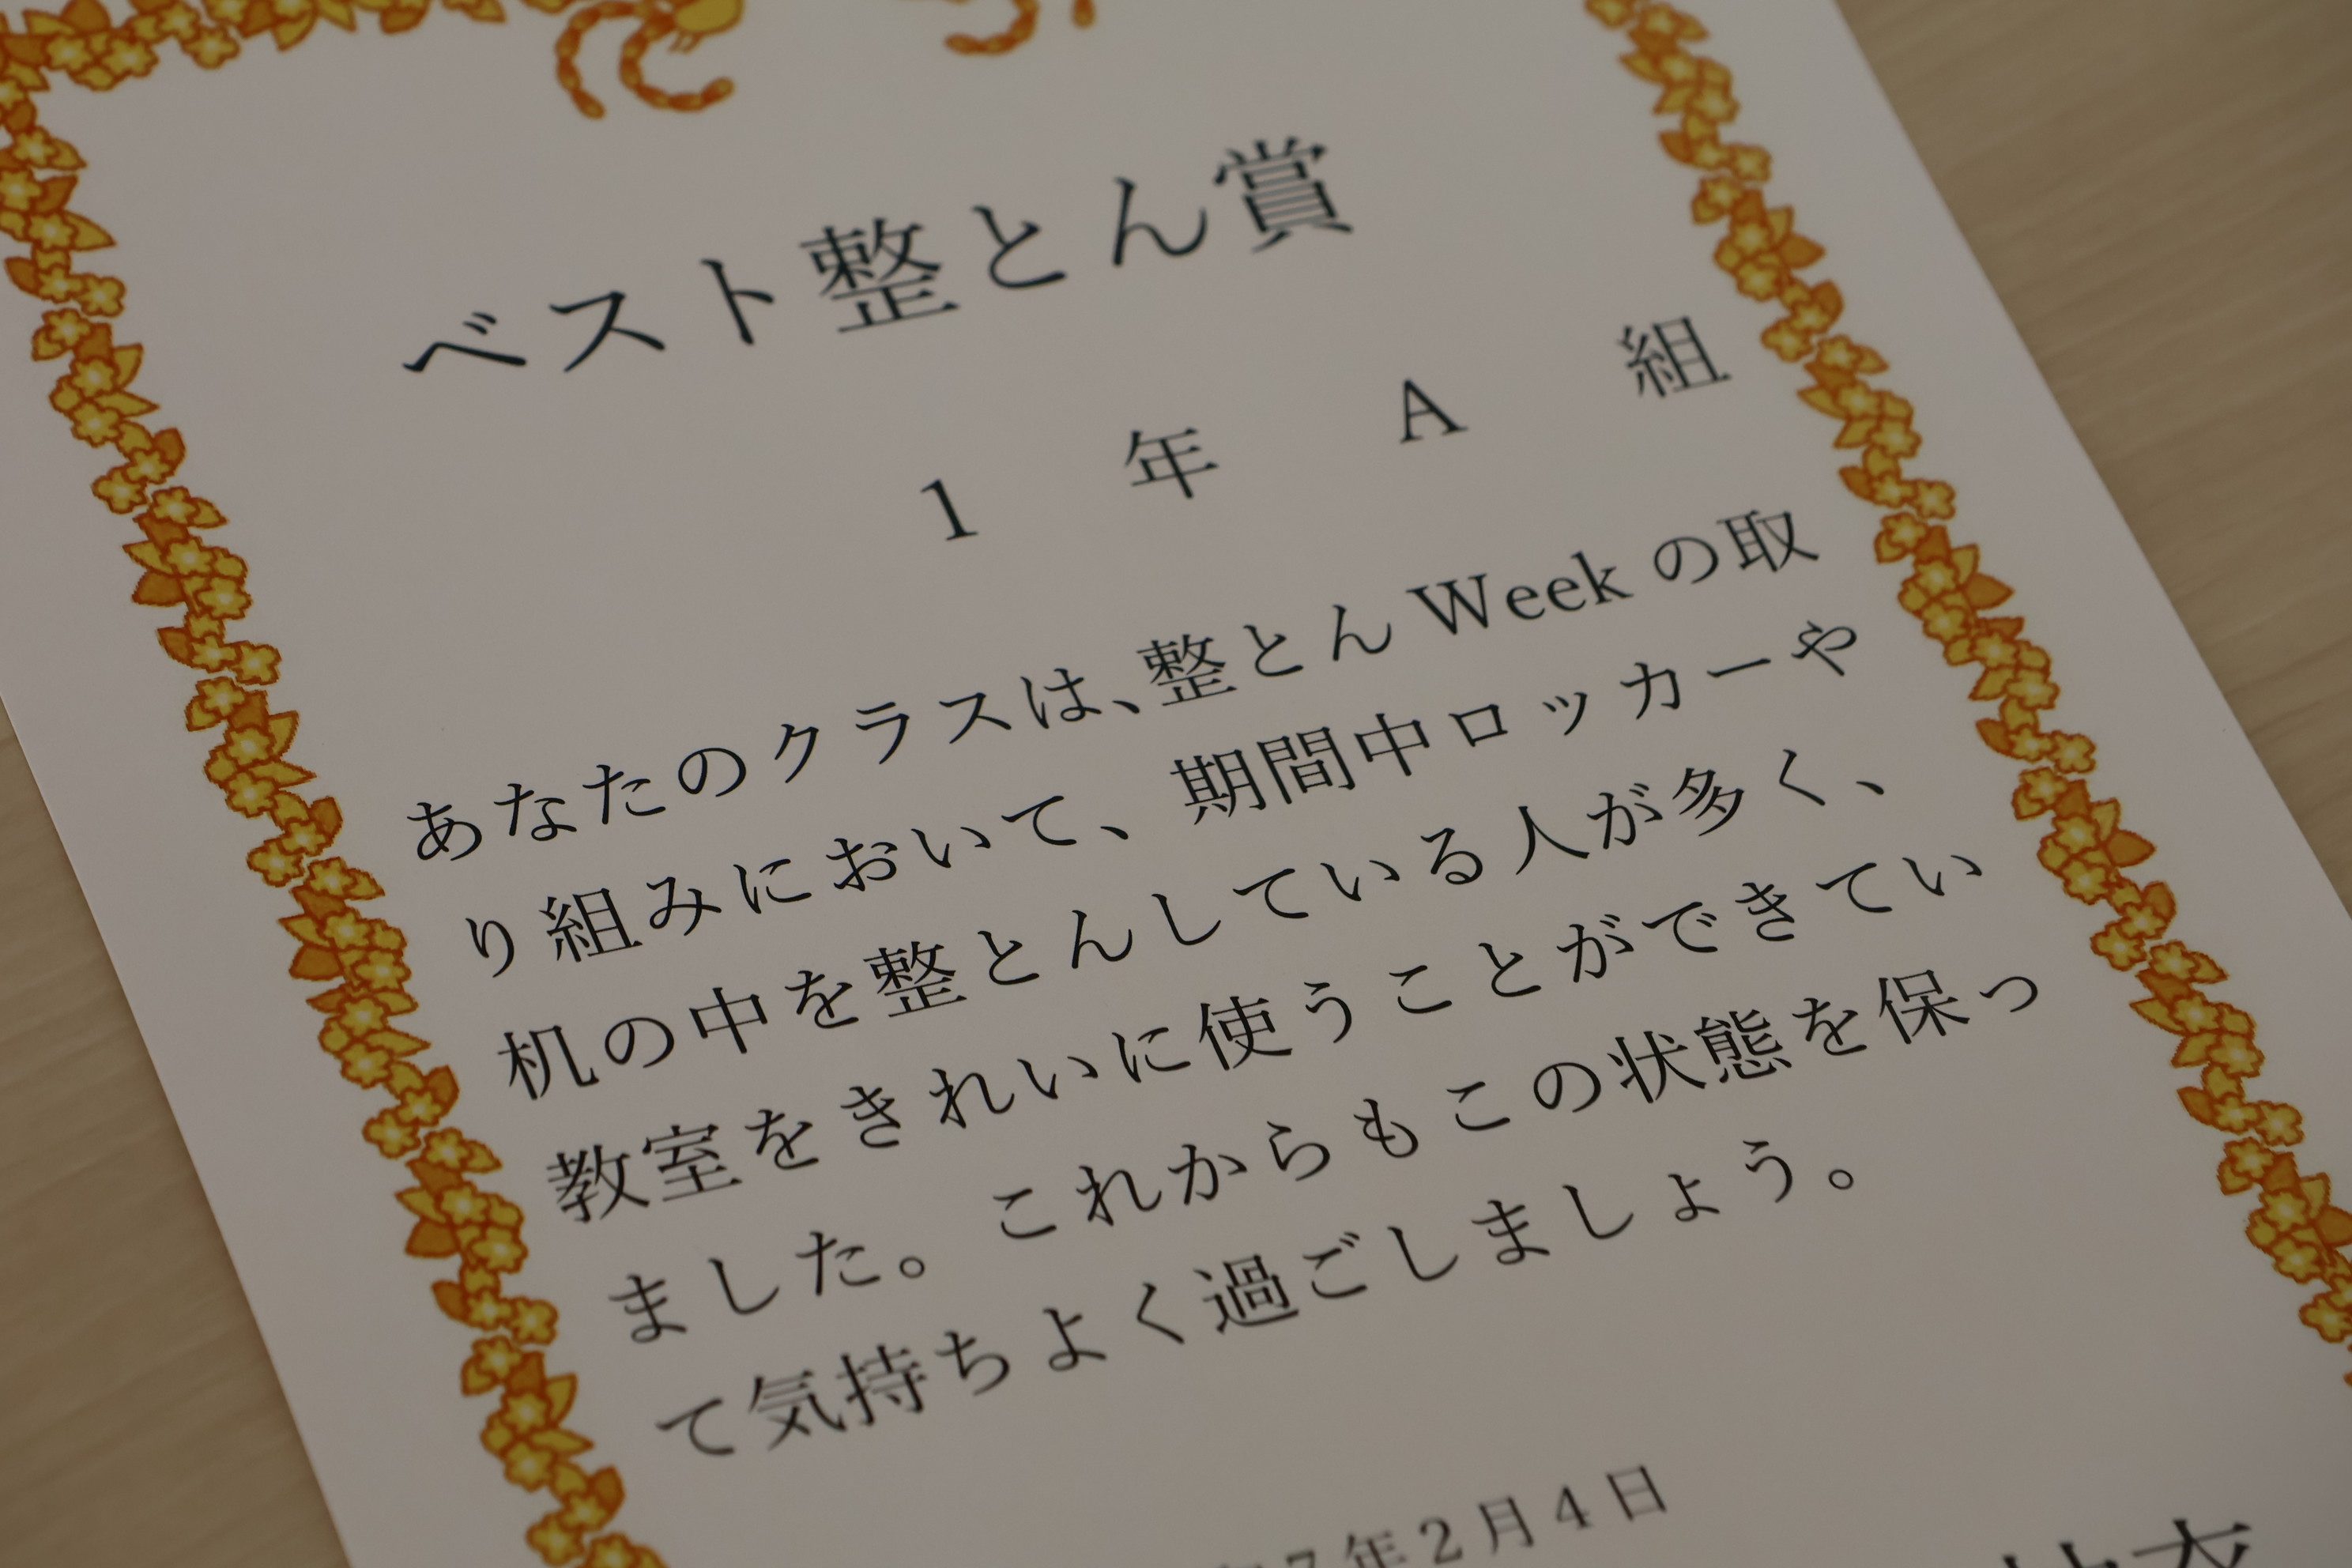 ベスト整とん賞
1 年 A 組
あなたのクラスは、整とん Week の取
り組みにおいて、期間中ロッカーや
机の中を整とんしている人が多く、
教室をきれいに使うことができてい
ました。これからもこの状態を保っ
て気持ちよく過ごしましょう。
7年2月4日